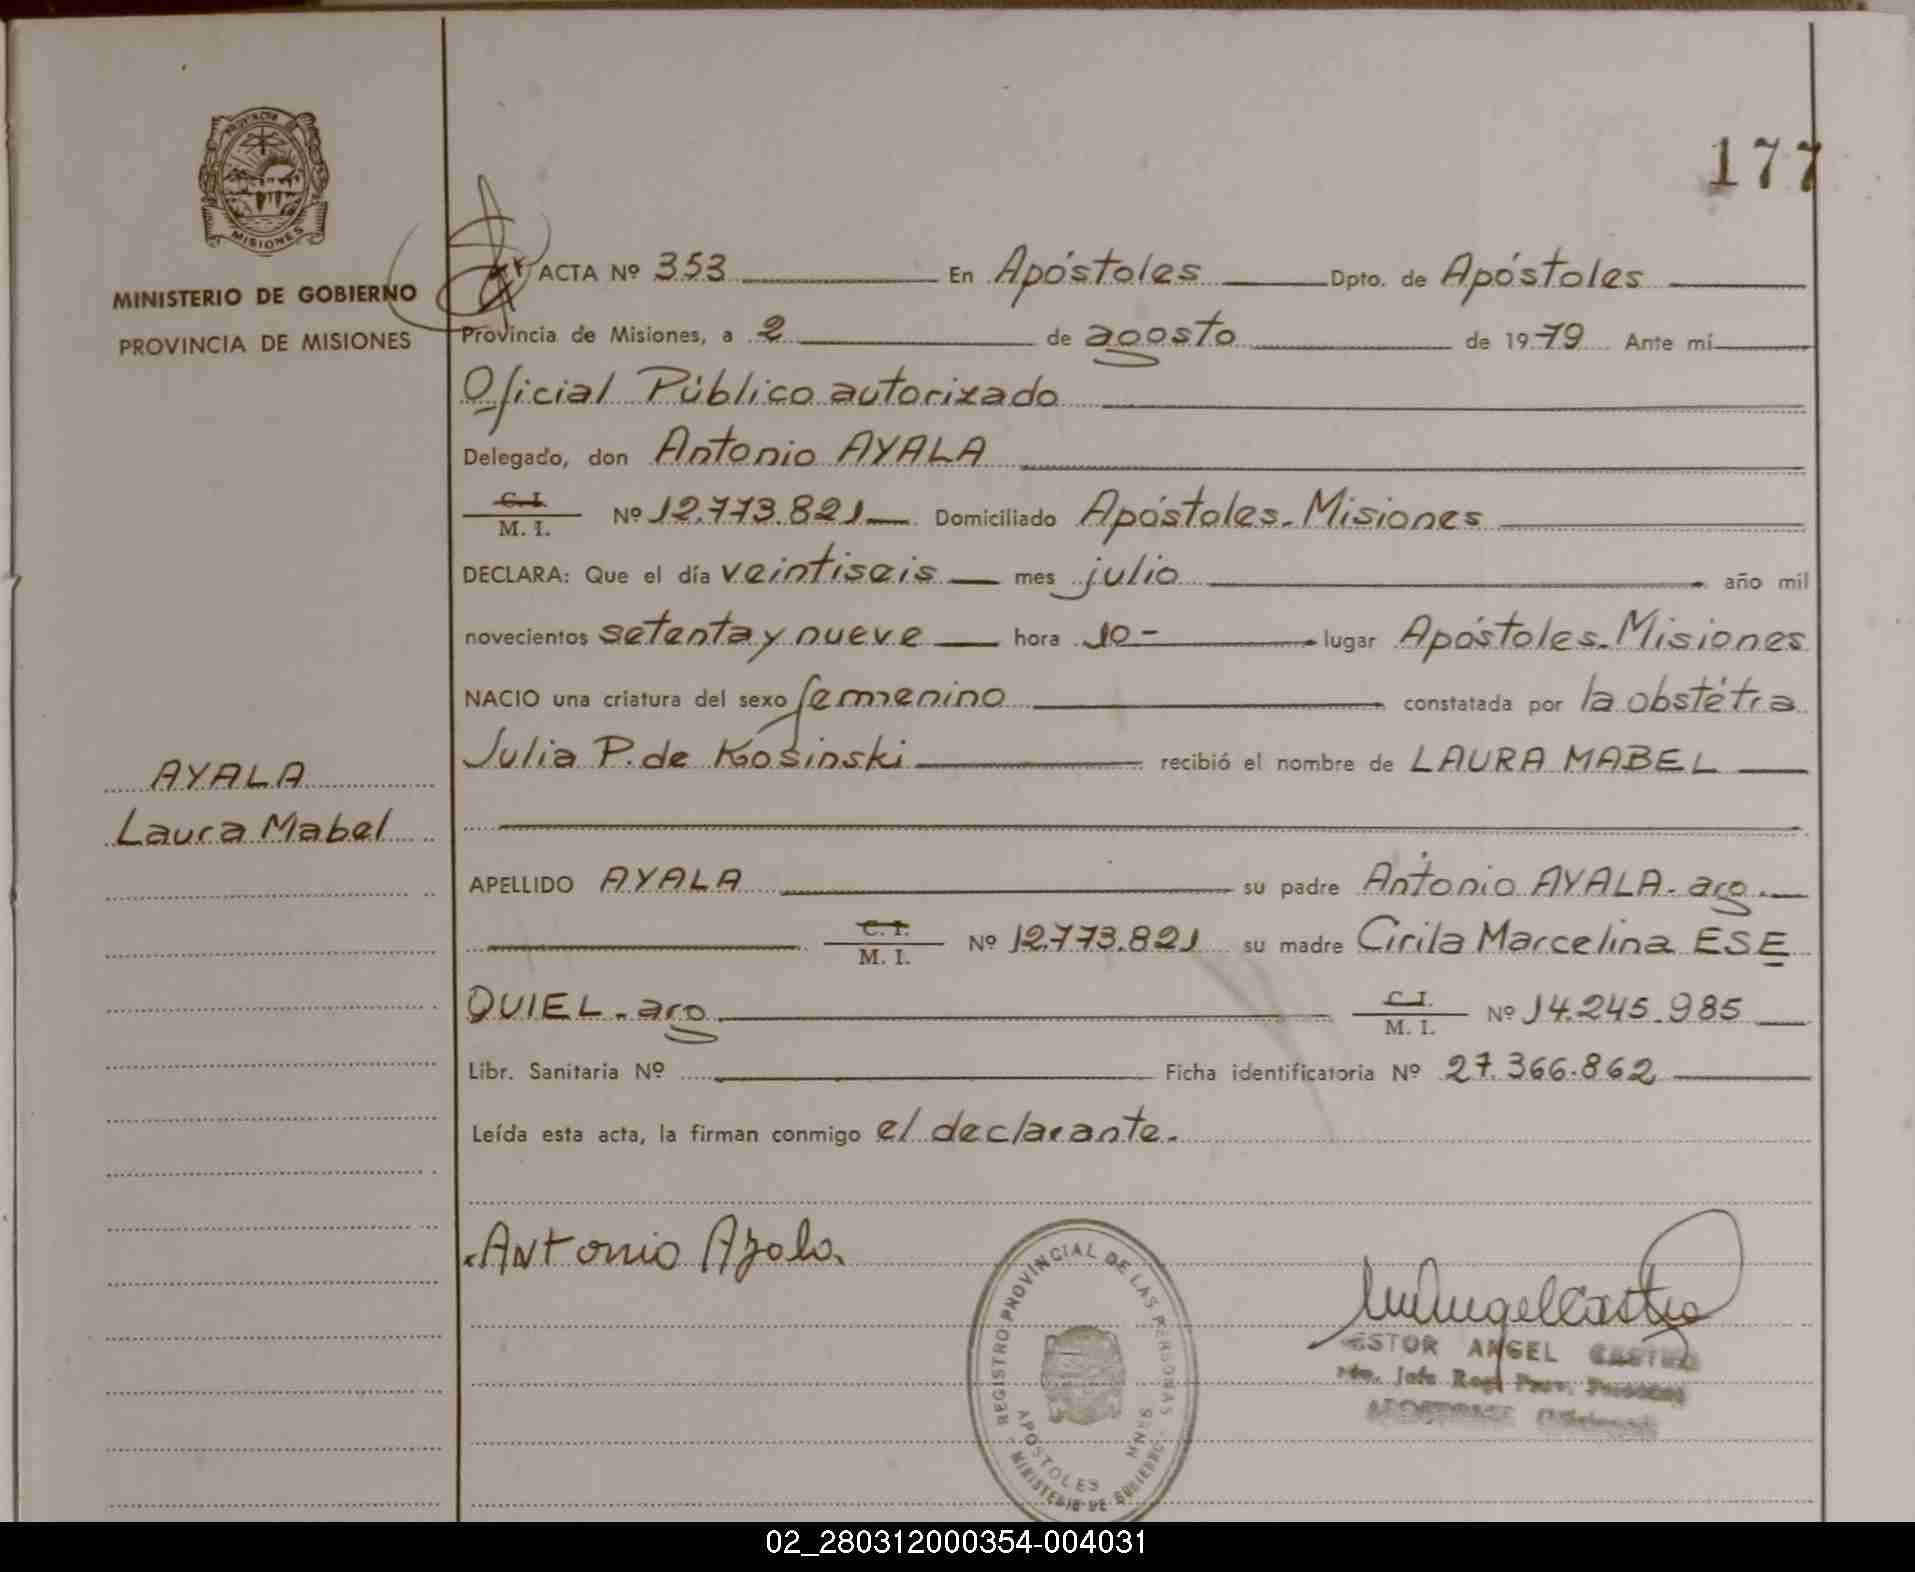 177
PROVINCIA DE
MISIONES
MINISTERIO DE GOBIERNO
PROVINCIA DE MISIONES
ACTA Nº 353 En Apóstoles Dpto. de Apóstoles
Provincia de Misiones, a 2 de agosto de 1979 Ante mí
Oficial Público autorizado
Delegado, don Antonio AYALA
C. I.
M. I. Nº 12.773.821 Domiciliado Apóstoles-Misiones
DECLARA: Que el día veintiseis mes julio año mil
novecientos setenta y nueve hora 10- lugar Apóstoles-Misiones
NACIO una criatura del sexo femenino constatada por la obstétra
Julia P. de Kosinski recibió el nombre de LAURA MABEL
AYALA
Laura Mabel
APELLIDO AYALA su padre Antonio AYALA- arg.
C. I.
M. I. Nº 12.773.821 su madre Cirila Marcelina ESE
QUIEL - arg C. I.
M. I. Nº 14.245.985
Libr. Sanitaria Nº Ficha identificatoria Nº 27.366.862
Leída esta acta, la firman conmigo el declarante.
Antonio Ayala
REGISTRO PROVINCIAL DE LAS PERSONAS
APOSTOLES MNES
MINISTERIO DE GOBIERNO
ESTOR ANGEL CASTRO
Jefe Reg. Prov. Personas
02_280312000354-004031